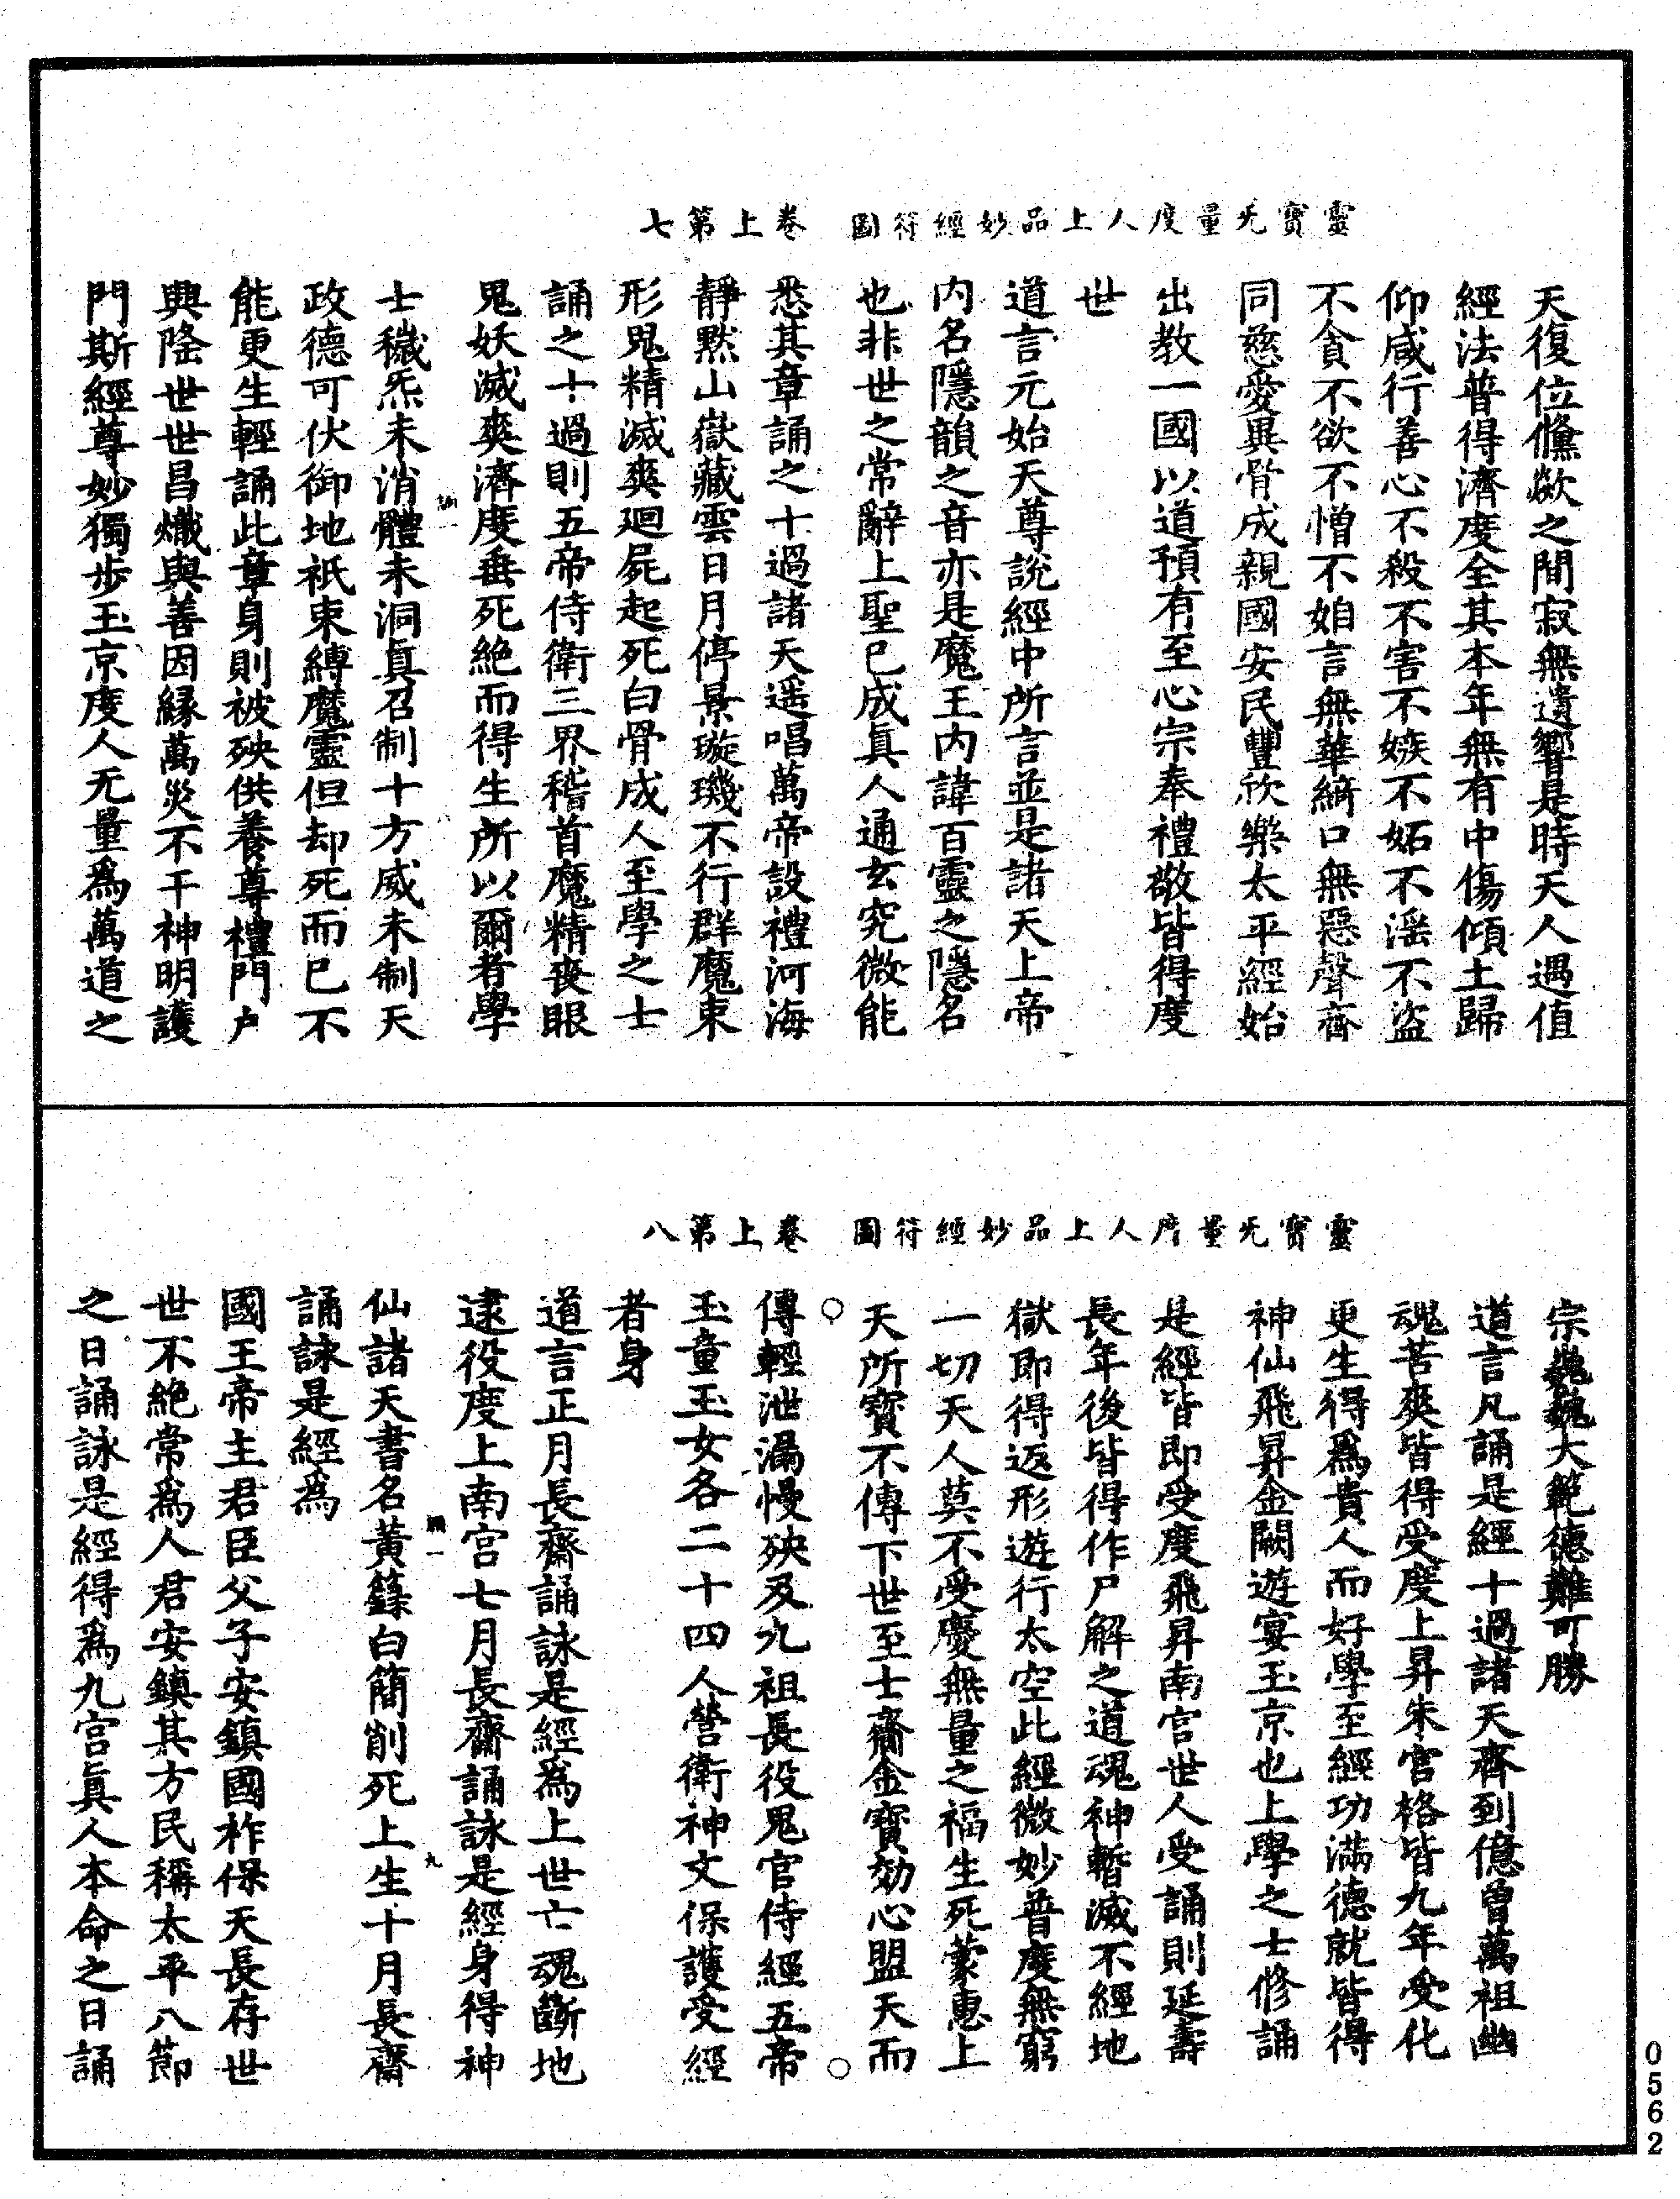 靈寶旡量度人上品妙經符圖　卷上第七
天復位倏欻之間寂無遺響是時天人遇值
經法普得濟度全其本年無有中傷傾土歸
仰咸行善心不殺不害不嫉不妬不淫不盜
不貪不欲不憎不㛊言無華綺口無惡聲齊
同慈愛異骨成親國安民豐欣樂太平經始
出教一國以道預有至心宗奉禮敬皆得度
世
道言元始天尊說經中所言並是諸天上帝
内名隱韻之音亦是魔王内諱百靈之隱名
也非世之常辭上聖已成眞人通玄究微能
悉其章誦之十過諸天遥唱萬帝設禮河海
靜默山嶽藏雲日月停景璇璣不行群魔束
形鬼精滅爽廻屍起死白骨成人至學之士
誦之十過則五帝侍衛三界稽首魔精喪眼
鬼妖滅爽濟度垂死絶而得生所以爾者學
士穢炁未消體未洞眞召制十方威未制天
政德可伏御地祇束縛魔靈但却死而已不
能更生輕誦此章身則被殃供養尊禮門户
興隆世世昌熾與善因緣萬災不干神明護
門斯經尊妙獨步玉京度人无量爲萬道之
靈寶旡量度人上品妙經符圖　卷上第八
宗巍巍大範德難可勝
道言凡誦是經十過諸天齊到億曾萬祖幽
魂苦爽皆得受度上昇朱宮格皆九年受化
更生得爲貴人而好學至經功滿德就皆得
神仙飛昇金闕遊宴玉京也上學之士修誦
是經皆即受度飛昇南宮世人受誦則延壽
長年後皆得作尸解之道魂神暫滅不經地
獄即得返形遊行太空此經微妙普度無窮
一切天人莫不受慶無量之福生死蒙惠上
天所寶不傳下世至士齎金寶効心盟天而
傳輕泄漏慢殃及九祖長役鬼官侍經五帝
玉童玉女各二十四人營衛神文保護受經
者身
道言正月長齋誦詠是經爲上世亡魂斷地
逮役度上南宮七月長齋誦詠是經身得神
仙諸天書名黃籙白簡削死上生十月長齋
誦詠是經爲
國王帝主君臣父子安鎮國祚保天長存世
世不絶常爲人君安鎮其方民稱太平八節
之日誦詠是經得爲九宮眞人本命之日誦
0562